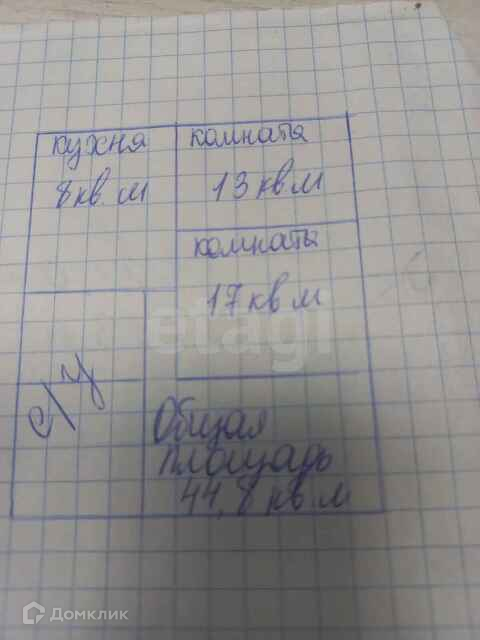 кухня
8кв.м
комната
13квм
комнаты
17квм
с/у
Общая
площадь
44,8 кв.м
etagi
Домклик